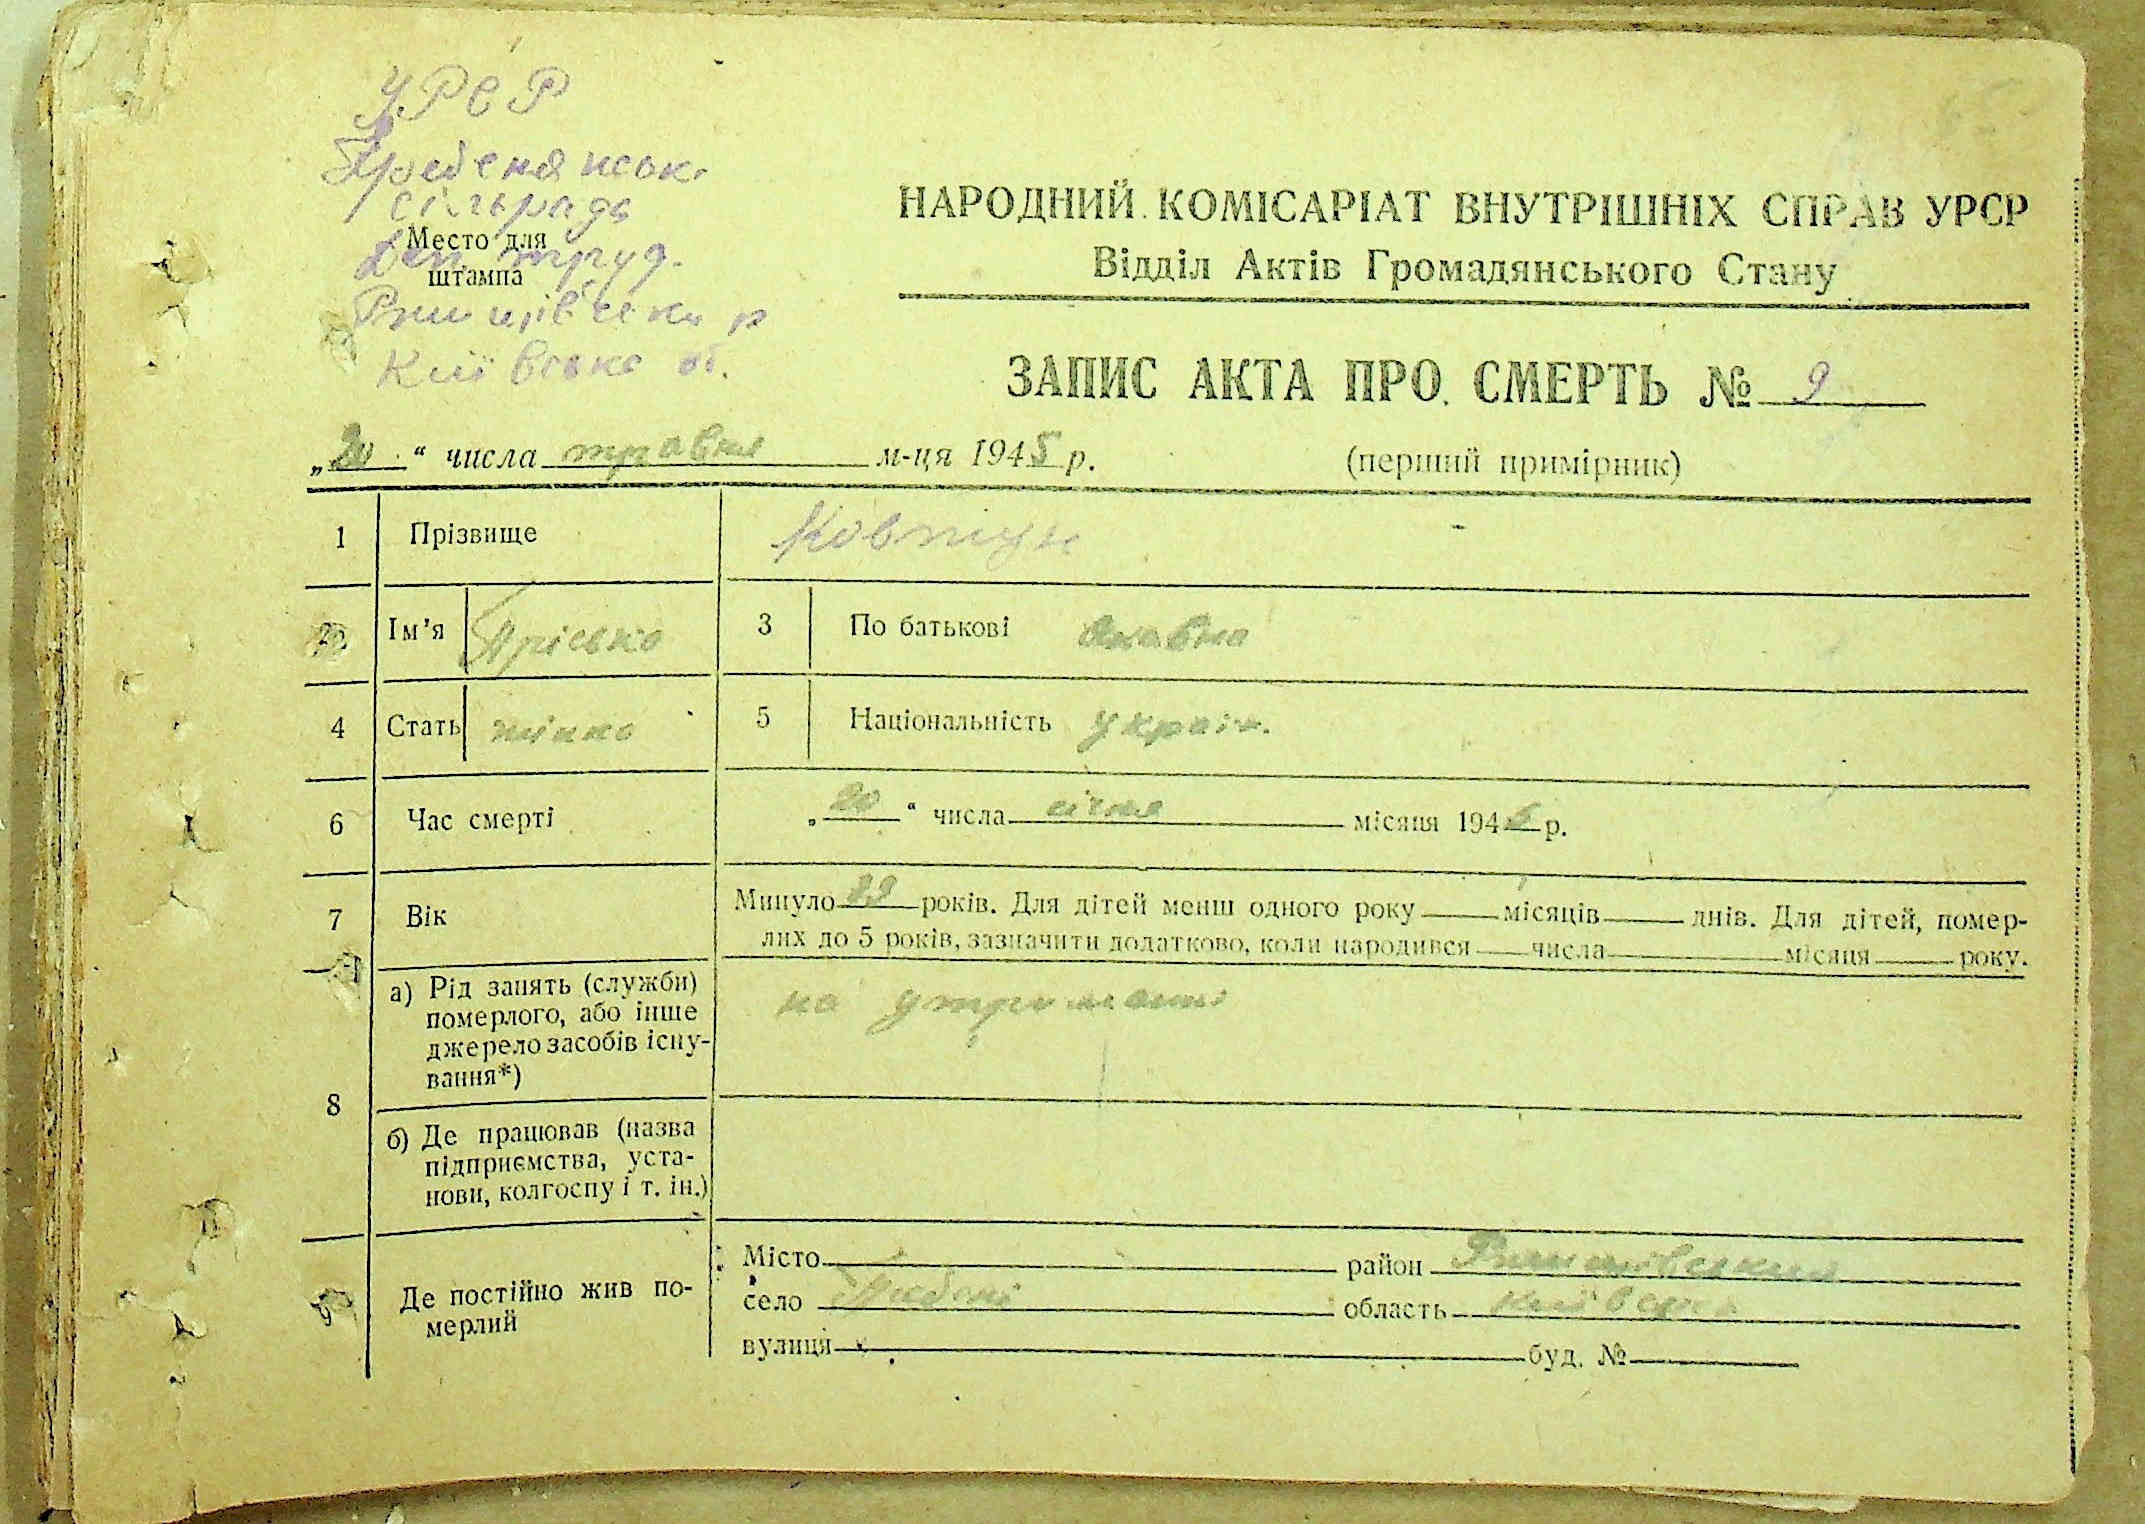 УРСР
Гребенянськ.
сільрада
Место для
штампа
Деп. труд.
Ржищівськ р
Київське об.
НАРОДНИЙ КОМІСАРІАТ ВНУТРІШНІХ СПРАВ УРСР
Відділ Актів Громадянського Стану
ЗАПИС АКТА ПРО СМЕРТЬ № 9
„20“ числа травня м-ця 1945 р.
(перший примірник)
1 Прізвище Ковтун
2 Ім’я Пріська 3 По батькові
4 Стать жінка 5 Національність Україн.
6 Час смерті „20“ числа січня місяця 194 р.
7 Вік Минуло років. Для дітей менш одного року місяців днів. Для дітей, помер-
лих до 5 років, зазначити додатково, коли народився числа місяця року.
8 а) Рід занять (служби)
померлого, або інше
джерело засобів існу-
вання*)
на утриманні
б) Де працював (назва
підприємства, уста-
нови, колгоспу і т. ін.)
9 Де постійно жив по-
мерлий
Місто район Ржищівський
село Гребені область Київська
вулиця буд. №